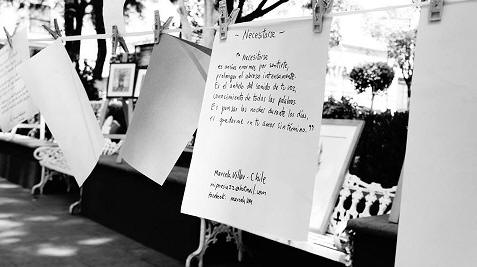 - Necesitarse -
"Necesitarse
es ansias enormes por sentirte,
prolongar el abrazo intensamente.
Es el anhelo del sonido de tu voz,
conocimiento de todas las palabras.
Es pensar las noches durante los días,
es quedarme en tu amor sin término."
Marcela Villar - Chile
@hotmail.com
facebook: marcela